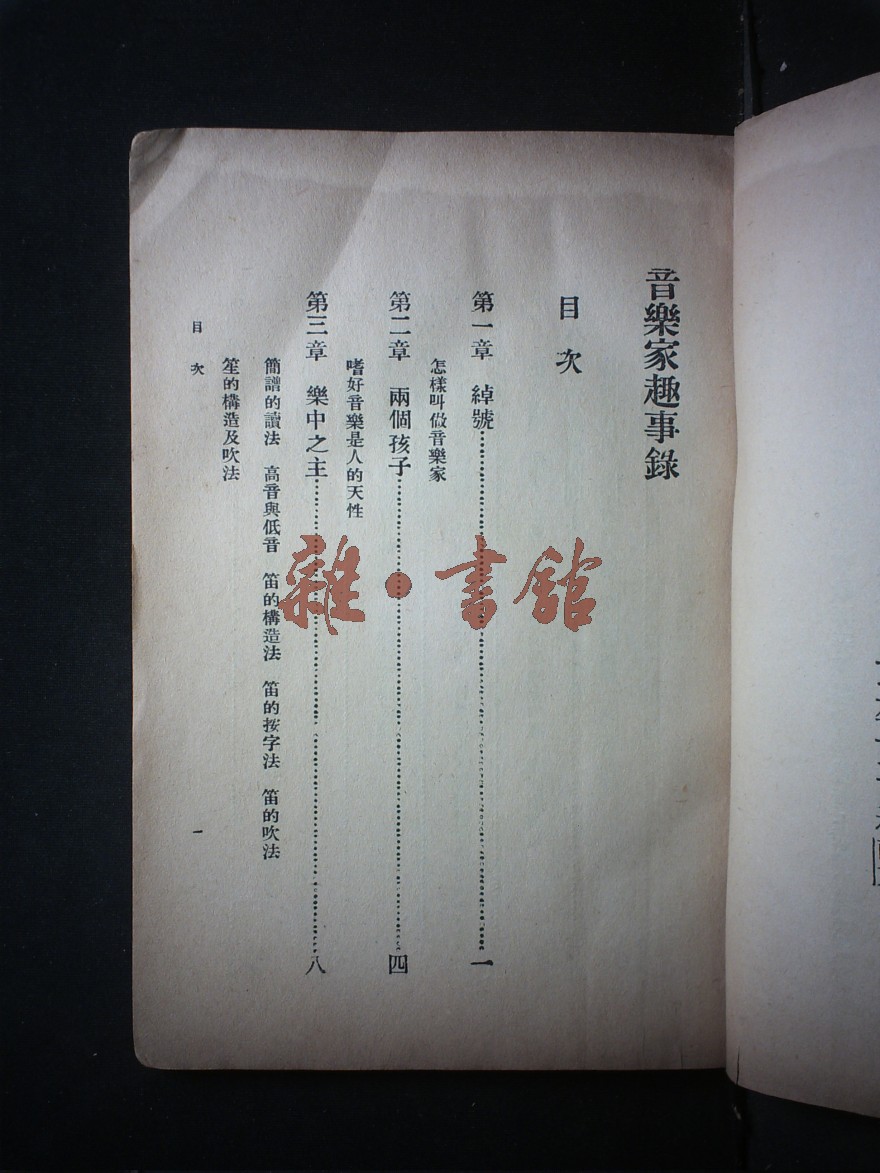 音樂家趣事錄
目次
第一章 綽號……一
怎樣叫做音樂家
第二章 兩個孩子……四
嗜好音樂是人的天性
第三章 樂中之主……八
簡譜的讀法 高音與低音 笛的構造法 笛的按字法 笛的吹法
笙的構造及吹法
目次 一
雜·書館